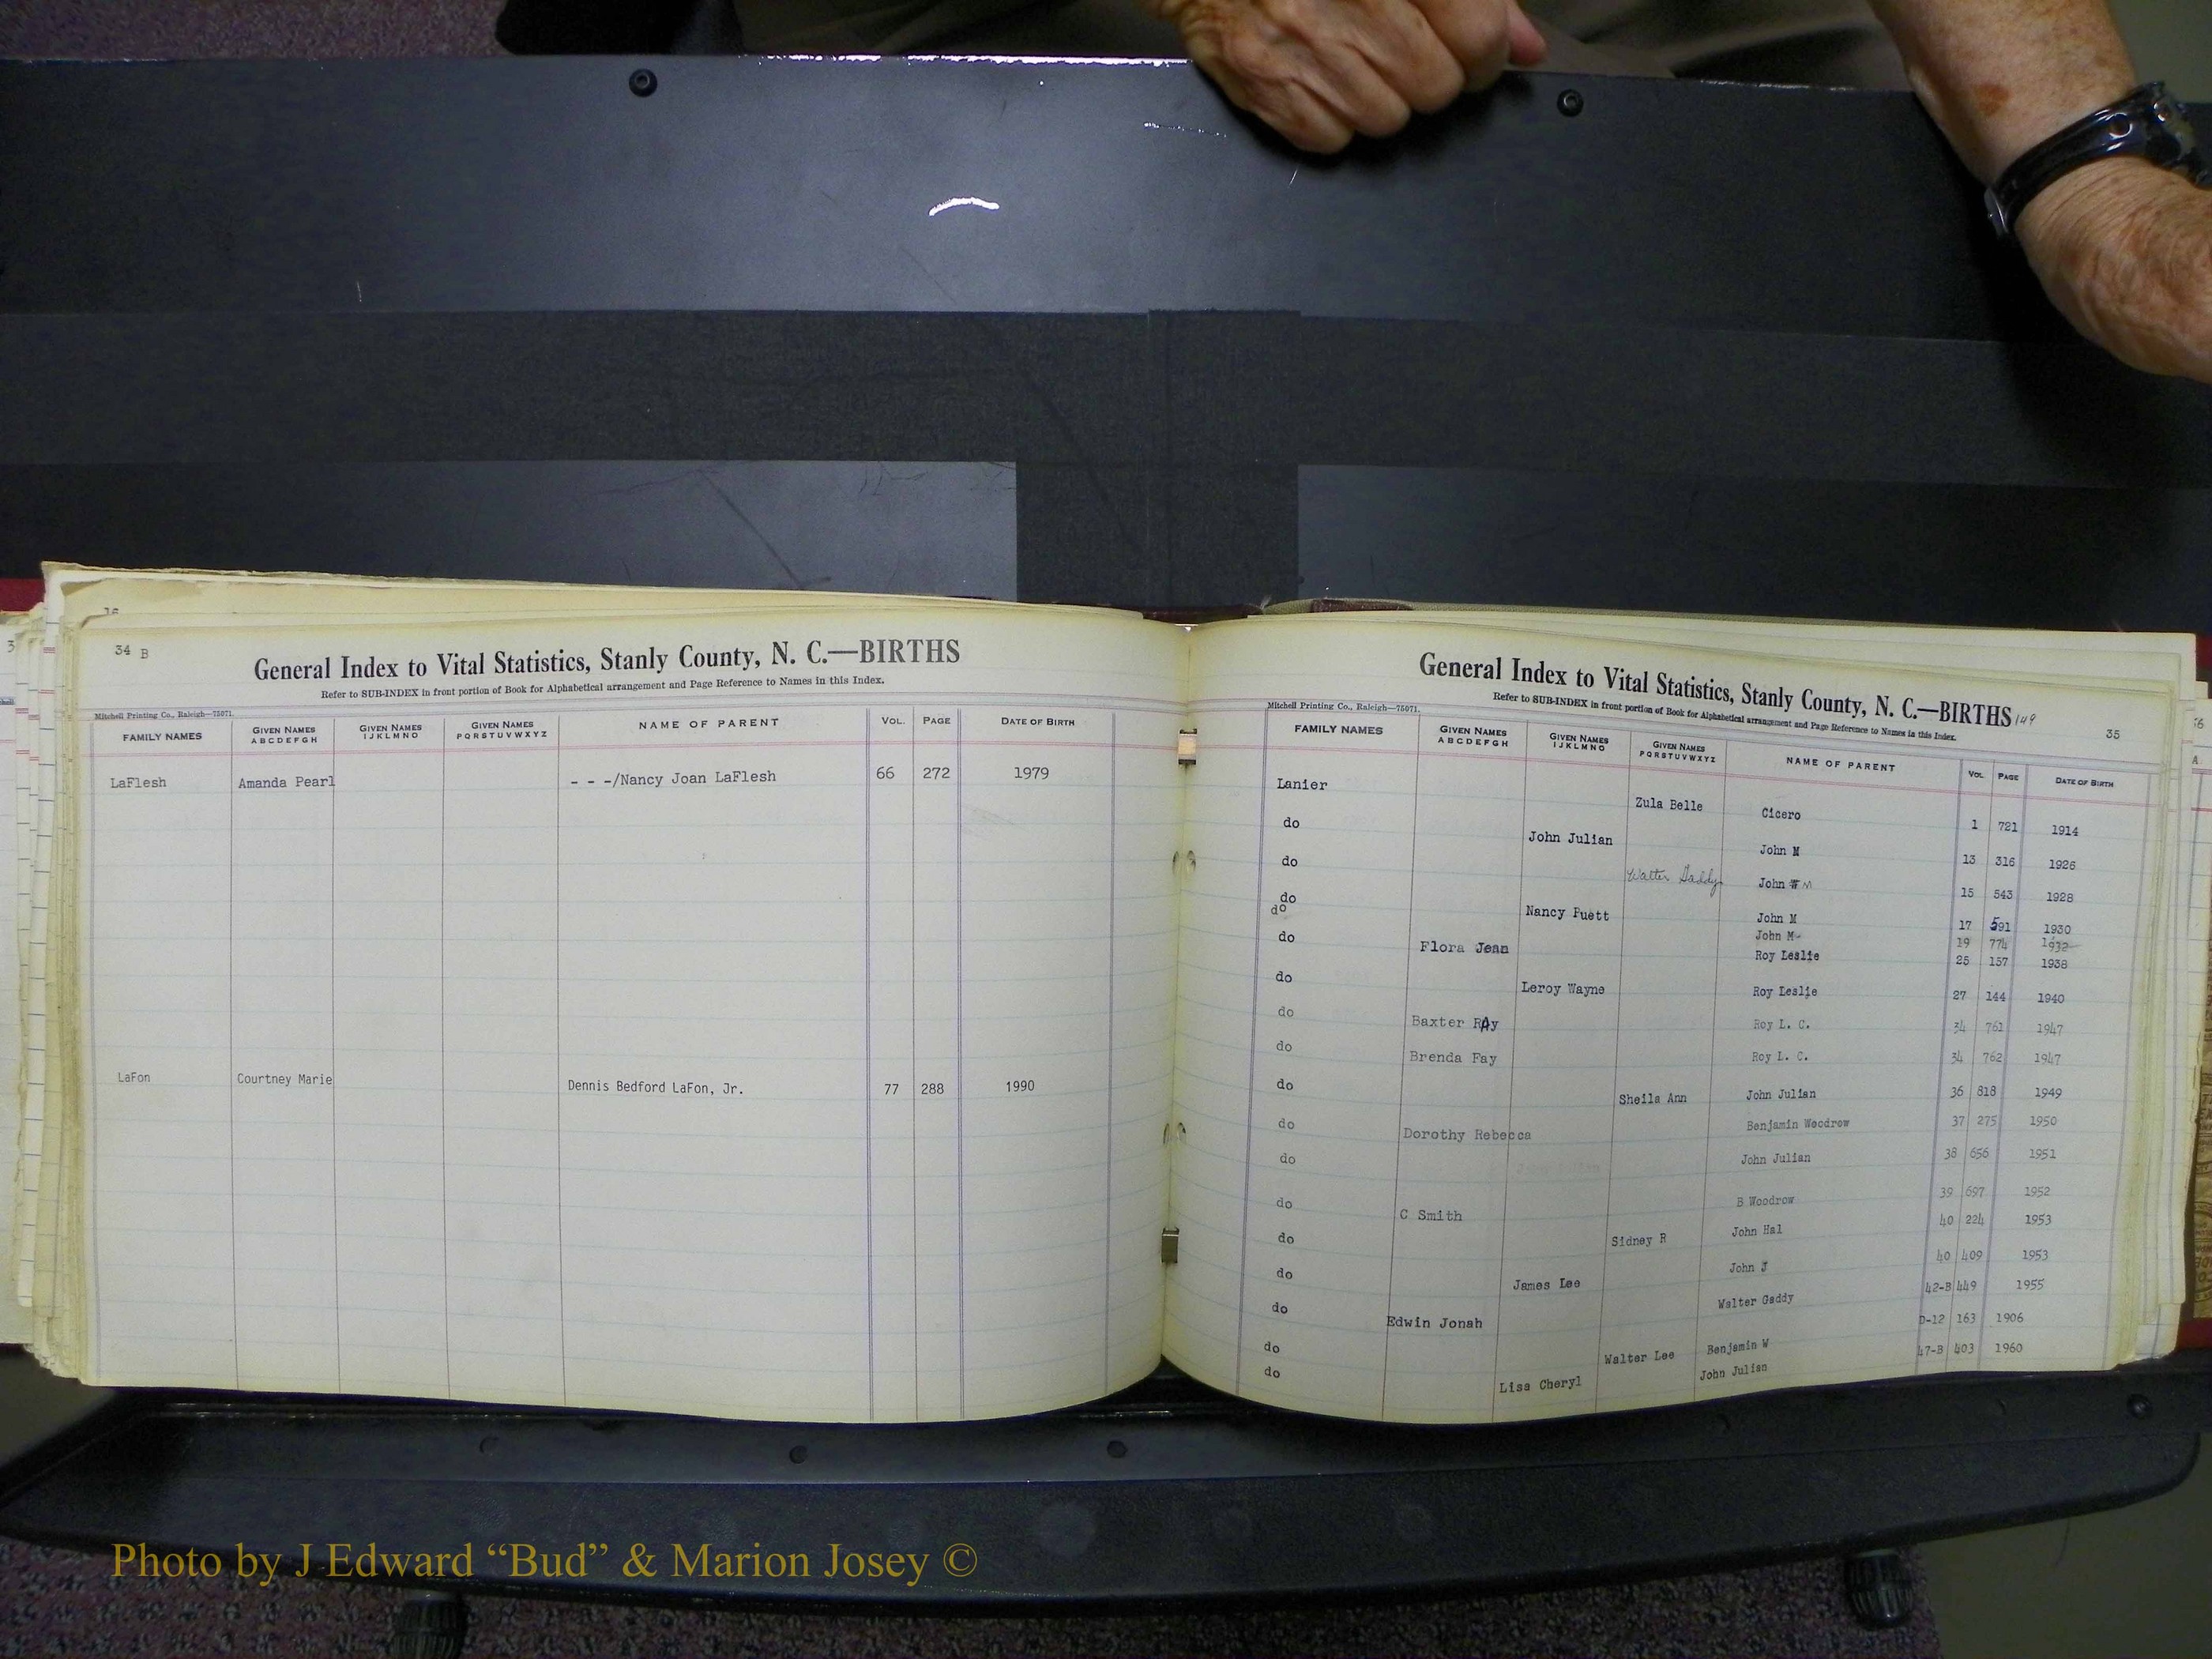 16
34 B
General Index to Vital Statistics, Stanly County, N. C.—BIRTHS
Refer to SUB-INDEX in front portion of Book for Alphabetical arrangement and Page Reference to Names in this Index.
Mitchell Printing Co., Raleigh—75071.
FAMILY NAMES GIVEN NAMES ABCDEFGH GIVEN NAMES IJKLMNO GIVEN NAMES PQRSTUVWXYZ NAME OF PARENT VOL. PAGE DATE OF BIRTH
LaFlesh Amanda Pearl - - -/Nancy Joan LaFlesh 66 272 1979
LaFon Courtney Marie Dennis Bedford LaFon, Jr. 77 288 1990
General Index to Vital Statistics, Stanly County, N. C.—BIRTHS 149
Refer to SUB-INDEX in front portion of Book for Alphabetical arrangement and Page Reference to Names in this Index.
35
Mitchell Printing Co., Raleigh—75071.
FAMILY NAMES GIVEN NAMES ABCDEFGH GIVEN NAMES IJKLMNO GIVEN NAMES PQRSTUVWXYZ NAME OF PARENT VOL. PAGE DATE OF BIRTH
Lanier Zula Belle Cicero 1 721 1914
do John Julian John M 13 316 1926
do Walter Gaddy John M 15 543 1928
do Nancy Fuett John M 17 591 1930
do John M 19 774 1932
do Flora Jean Roy Leslie 25 157 1938
do Leroy Wayne Roy Leslie 27 144 1940
do Baxter RAy Roy L. C. 34 761 1947
do Brenda Fay Roy L. C. 34 762 1947
do Sheila Ann John Julian 36 818 1949
do Dorothy Rebecca Benjamin Woodrow 37 275 1950
do John Julian 38 656 1951
do C Smith B Woodrow 39 697 1952
do Sidney R John Hal 40 224 1953
do James Lee John J 40 409 1953
do Edwin Jonah Walter Gaddy 42-B 449 1955
do Walter Lee Benjamin W D-12 163 1906
do Lisa Cheryl John Julian 47-B 403 1960
Photo by J Edward “Bud” & Marion Josey ©